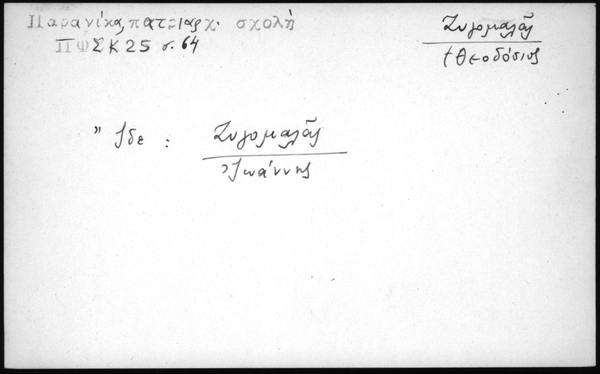 Παρανίκα, πατριαρχ. σχολή
ΠΦΣΚ 25 σ. 64
Ζυγομαλᾶς
Θεοδόσιος
Ἴδε :
Ζυγομαλᾶς
Ἰωάννης